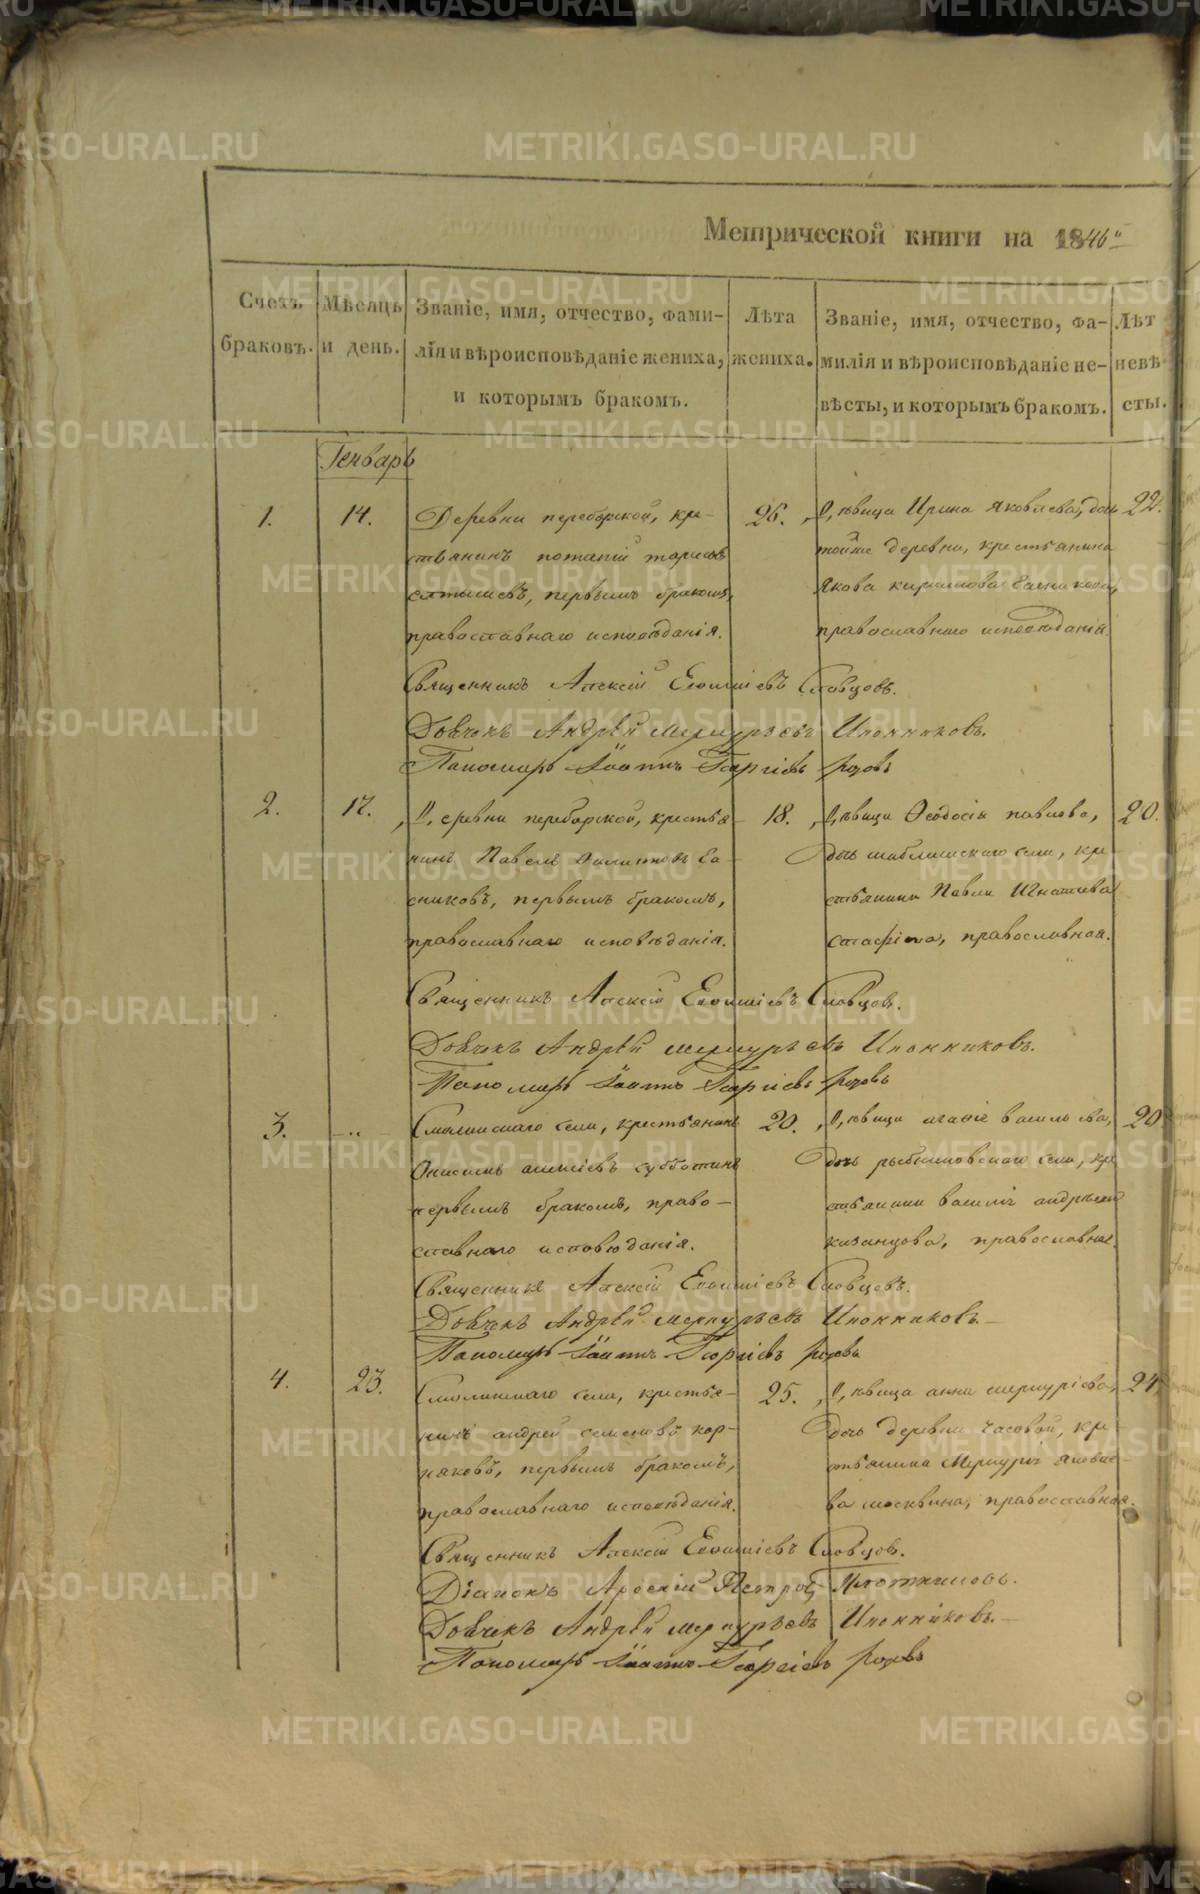 Метрической книги на 1846й
Счетъ браковъ.
Мѣсяцъ и день.
Званіе, имя, отчество, фами-
лія и вѣроисповѣданіе жениха,
и которымъ бракомъ.
Лѣта жениха.
Званіе, имя, отчество, фа-
милія и вѣроисповѣданіе не-
вѣсты, и которымъ бракомъ.
Лѣт невѣ
сты.
Генварь
1. 14. Деревни переборской, кре-
стьянинъ
первымъ бракомъ,
православнаго исповѣданія.
26.
Дѣвица Ирина Яковлева, дочь
тойже деревни, крестьянина
Якова
православнаго исповѣданія.
22.
Священникъ Алексій Евфиміевъ Словцовъ.
Дьячекъ Андрей Меркурьевъ Ипонниковъ.
Пономарь Іоаннъ Георгіевъ
2. 17. Деревни переборской, крестья-
нинъ Павелъ Филиповъ Са-
никовъ, первымъ бракомъ,
православнаго исповѣданія.
18.
Дѣвица Ѳеодосія павлова,
дочь села, кре-
стьянина Павла Игнатьева
православная.
20.
Священникъ Алексій Евфиміевъ Словцовъ.
Дьячекъ Андрей Меркурьевъ Ипонниковъ.
Пономарь Іоаннъ Георгіевъ
3. Смолинскаго села, крестьянинъ
алексіевъ субботинъ
первымъ бракомъ, право-
славнаго исповѣданія.
20.
Дѣвица васильева,
дочь села, кре
стьянина
казанцова, православная.
20.
Священникъ Алексій Евфиміевъ Словцовъ.
Дьячекъ Андрей Меркурьевъ Ипонниковъ.
Пономарь Іоаннъ Георгіевъ
4. 23. Смолинскаго села, крестья-
нинъ андрей семеновъ кор-
няковъ, первымъ бракомъ,
православнаго исповѣданія.
25.
Дѣвица анна меркуріева,
дочь деревни часовой, кре-
стьянина Меркурія яковле-
ва москвина, православная.
24.
Священникъ Алексій Евфиміевъ Словцовъ.
Діаконъ Арсеній Петровъ Плотниковъ.
Дьячекъ Андрей Меркурьевъ Ипонниковъ.
Пономарь Іоаннъ Георгіевъ
METRIKI.GASO-URAL.RU